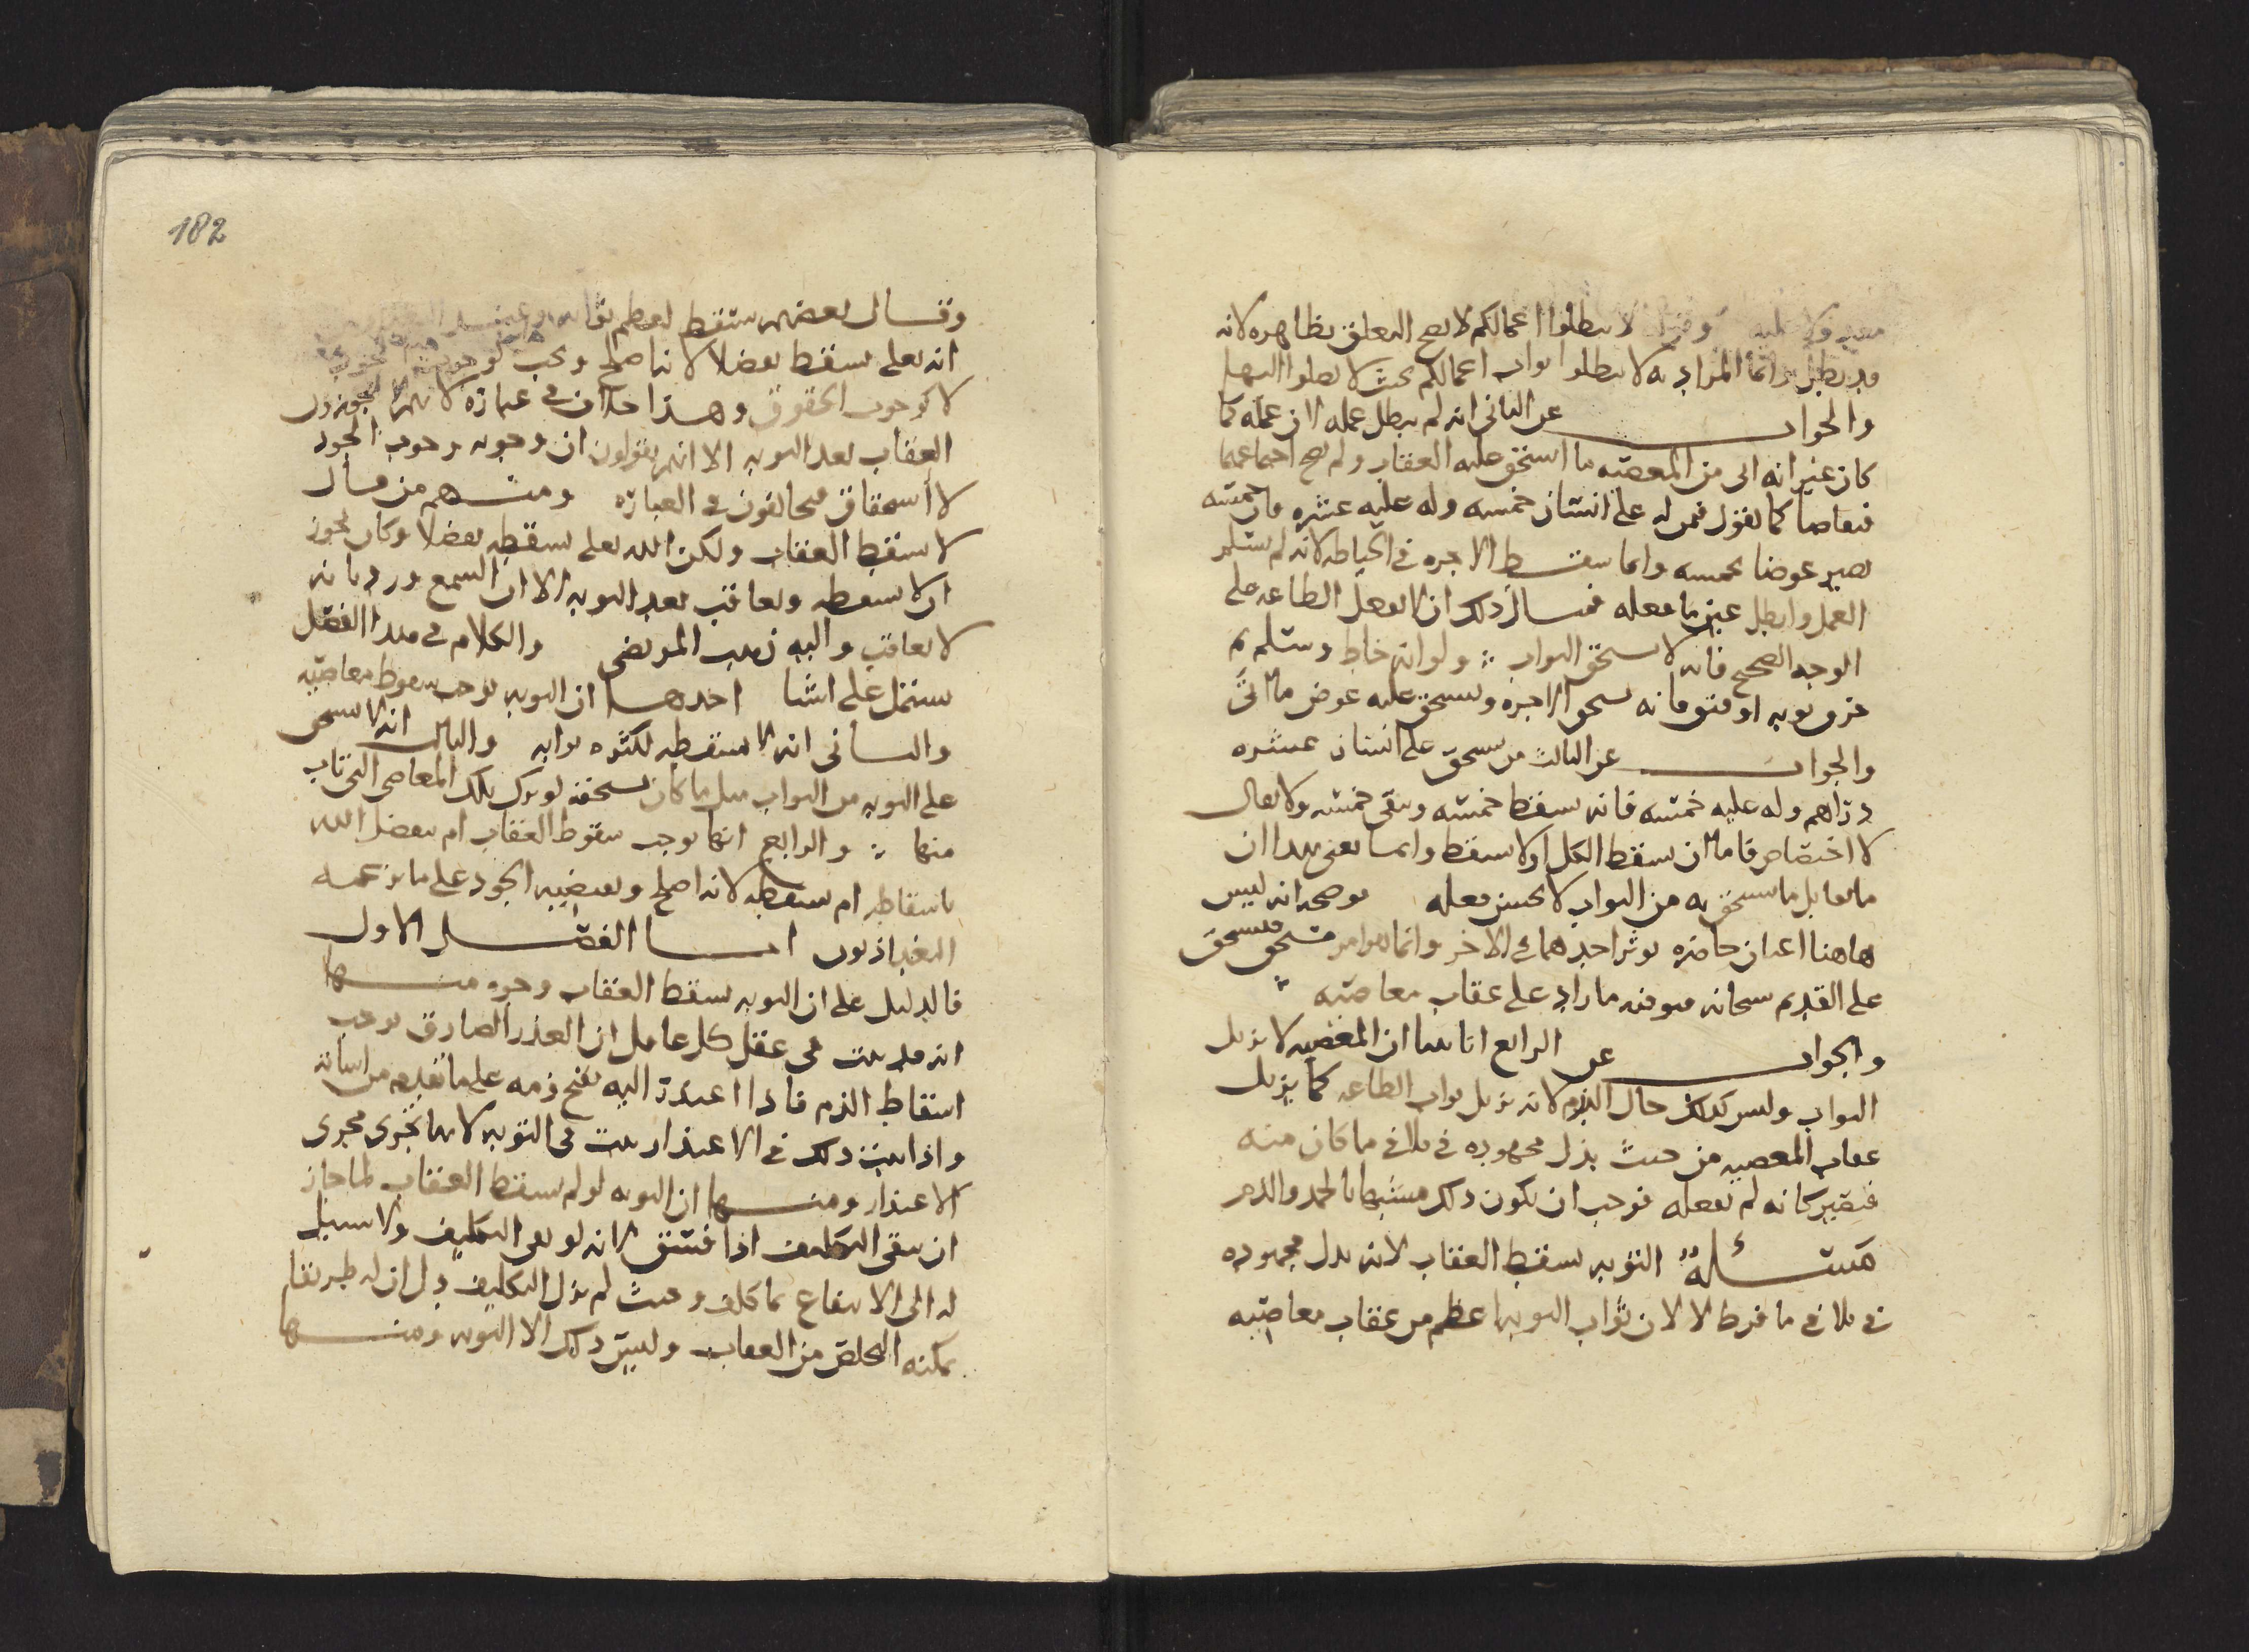 لا تبطلوا اعمالكم لا يصح التعلق بظاهره لانه
قد بطل وانما المراد به لا تبطلوا ثواب اعمالكم بحيث لا تصلوا اليها
والجواب عن الثاني انه لم يبطل عمله لان عمله كما
كان غير انه اتى من المعصيه ما استحق عليه العقاب ولم يصح اجتماعهما
فتقاصا كما نقول فمن له على انسان خمسه وله عليه عشره فان خمسته
تصير عوضا بخمسه وانما سقط الاجره في الخياطه لانه لم يسلم
العمل وابطل عين ما فعله فمثال ذلك ان لا يفعل الطاعه على
الوجه الصحيح فانه لا يستحق الثواب ولو انه خاط وسلم ثم
خرق ثوبه او فتق فانه يستحق الاجره ويستحق عليه عوض ما اتى
والجواب عن الثالث من يستحق على انسان عشره
دراهم وله عليه خمسه فانه يسقط خمسه ويبقى خمسه ولا يقال
لا اختصاص فاما ان يسقط الكل او لا يسقط وانما يعنى بهذا ان
ما يقابل ما يستحق به من الثواب لا يحسن فعله يوضحه انه ليس
هاهنا اعيان حاضره يوثر احدهما في الاخر وانما هو امر مستحق فيستحق
على القديم سبحانه توفيه ما زاد على عقاب معاصيه
والجواب عن الرابع انا بينا ان المعصيه لا تزيل
الثواب وليس كذلك حال الندم لانه يزيل ثواب الطاعه كما يزيل
عقاب المعصيه من حيث بذل مجهوده في تلافي ما كان منه
فيصير كانه لم يفعله فوجب ان يكون ذلك مشبها بالحمد والذم
مسئلة التوبه يسقط العقاب لانه بذل مجهوده
في تلافي ما فرط لا لان ثواب التوبه اعظم من عقاب معاصيه
182
وقال بعضهم يسقط لعظم ثوابه
انه تعلى يسقط تفضلا لانه اصلح ويجب
لا كوجوب الحقوق وهذا خلاف في عباره لانهم لا يجوزون
العقاب بعد التوبه الا انهم يقولون ان وجوبه وجوب الجود
لا استحقاق فيخالفون في العباره ومنهم من قال
لا يسقط العقاب ولكن الله تعلى يسقطه تفضلا وكان يجوز
ان لا يسقطه ويعاقب بعد التوبه الا ان السمع ورد بانه
لا يعاقب واليه ذهب المرتضى والكلام في هذا الفصل
يشتمل على اشيا احدها ان التوبه توجب سقوط معاصيه
والثاني انه لا يسقطه لكثره ثوابه والثالث انه لا يستحق
على التوبه من الثواب مثل ما كان يستحقه لو ترك تلك المعاصي التي تاب
منها والرابع انها توجب سقوط العقاب ام يتفضل الله
باسقاطه ام يسقطه لانه اصلح ويقتضيه الجود على ما يزعمه
البغداذيون اما الفصل الاول
فالدليل على ان التوبه يسقط العقاب وجوه منها
انه قد ثبت في عقل كل عاقل ان العذر الصادق يوجب
اسقاط الذم فاذا اعتذر اليه يقبح ذمه على ما تقدم من اساته
واذا ثبت ذلك في الاعتذار ثبت في التوبه لانها تجرى مجرى
الاعتذار ومنها ان التوبه لو لم يسقط العقاب لما جاز
ان يبقى التكليف اذا فسق لانه لو بقى التكليف ولا سبيل
له الى الانتفاع بما كلف وحيث لم يزل التكليف دل ان له طريقا
يمكنه التخلص من العقاب وليس ذلك الا التوبه ومنها